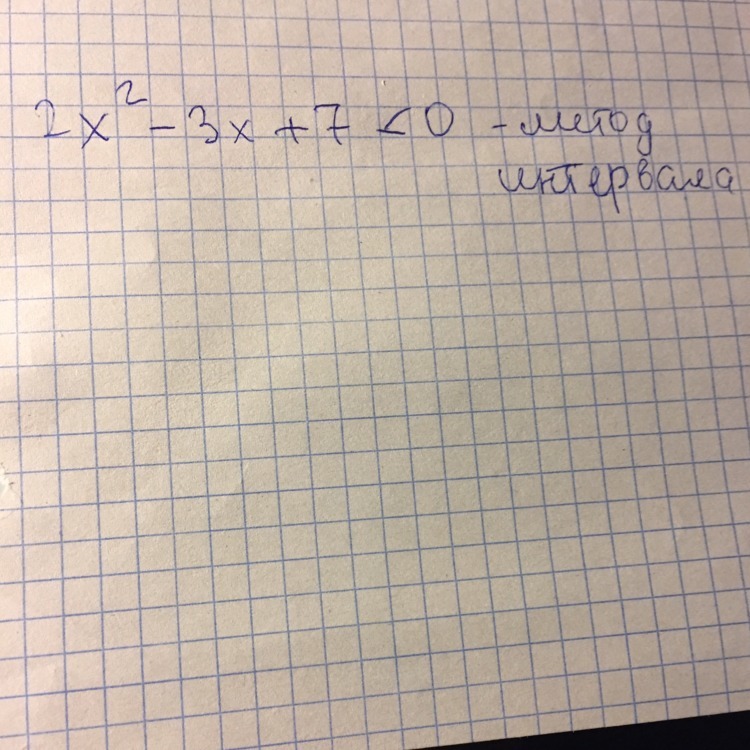 2x² - 3x + 7 < 0 - метод
интервала